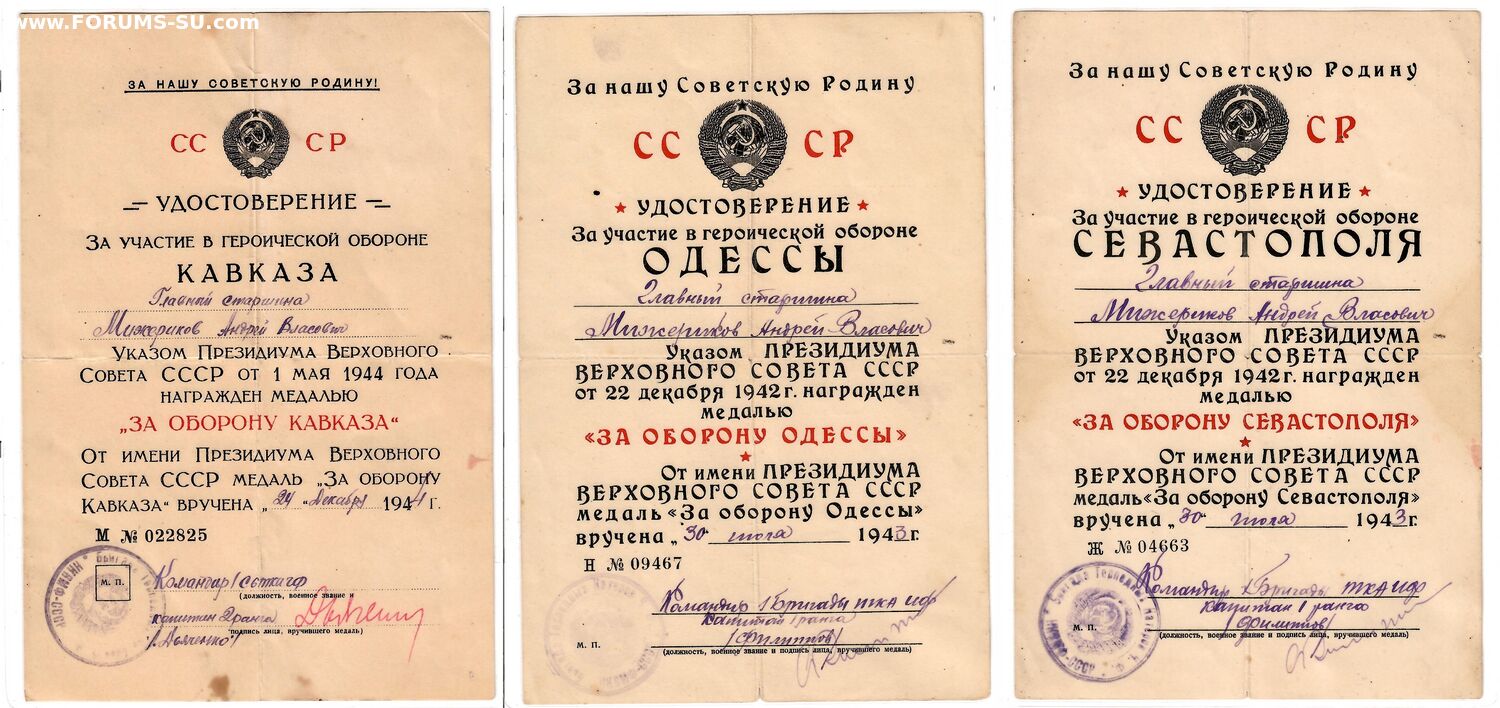 www.FORUMS-SU.com
ЗА НАШУ СОВЕТСКУЮ РОДИНУ!
СС СР
УДОСТОВЕРЕНИЕ
ЗА УЧАСТИЕ В ГЕРОИЧЕСКОЙ ОБОРОНЕ
КАВКАЗА
Главный старшина
Мижериков Андрей Власович
УКАЗОМ ПРЕЗИДИУМА ВЕРХОВНОГО
СОВЕТА СССР ОТ 1 МАЯ 1944 ГОДА
НАГРАЖДЕН МЕДАЛЬЮ
„ЗА ОБОРОНУ КАВКАЗА“
ОТ ИМЕНИ ПРЕЗИДИУМА ВЕРХОВНОГО
СОВЕТА СССР МЕДАЛЬ „ЗА ОБОРОНУ
КАВКАЗА“ ВРУЧЕНА „24 “ декабря 1944 г.
М № 022825
М. П.
Командир
(должность, военное звание и
капитан 2 ранга
подпись лица, вручившего медаль)
За нашу Советскую Родину
СС СР
★ УДОСТОВЕРЕНИЕ ★
За участие в героической обороне
ОДЕССЫ
Главный старшина
Мижериков Андрей Власович
Указом ПРЕЗИДИУМА
ВЕРХОВНОГО СОВЕТА СССР
от 22 декабря 1942 г. награжден
медалью
«ЗА ОБОРОНУ ОДЕССЫ»
★
От имени ПРЕЗИДИУМА
ВЕРХОВНОГО СОВЕТА СССР
медаль «За оборону Одессы»
вручена „30 июля 1943 г.
Н № 09467
Командир 1 Бригады ТКА ЧФ
капитан 1 ранга
/Филиппов/
М. П.
(должность, военное звание и подпись лица, вручившего медаль)
За нашу Советскую Родину
СС СР
★ УДОСТОВЕРЕНИЕ ★
За участие в героической обороне
СЕВАСТОПОЛЯ
Главный старшина
Мижериков Андрей Власович
Указом ПРЕЗИДИУМА
ВЕРХОВНОГО СОВЕТА СССР
от 22 декабря 1942 г. награжден
медалью
«ЗА ОБОРОНУ СЕВАСТОПОЛЯ»
★
От имени ПРЕЗИДИУМА
ВЕРХОВНОГО СОВЕТА СССР
медаль «За оборону Севастополя»
вручена „30 июля 1943 г.
Ж № 04663
Командир 1 Бригады ТКА ЧФ
капитан 1 ранга
/Филиппов/
М. П.
(должность, военное звание и подпись лица, вручившего медаль)